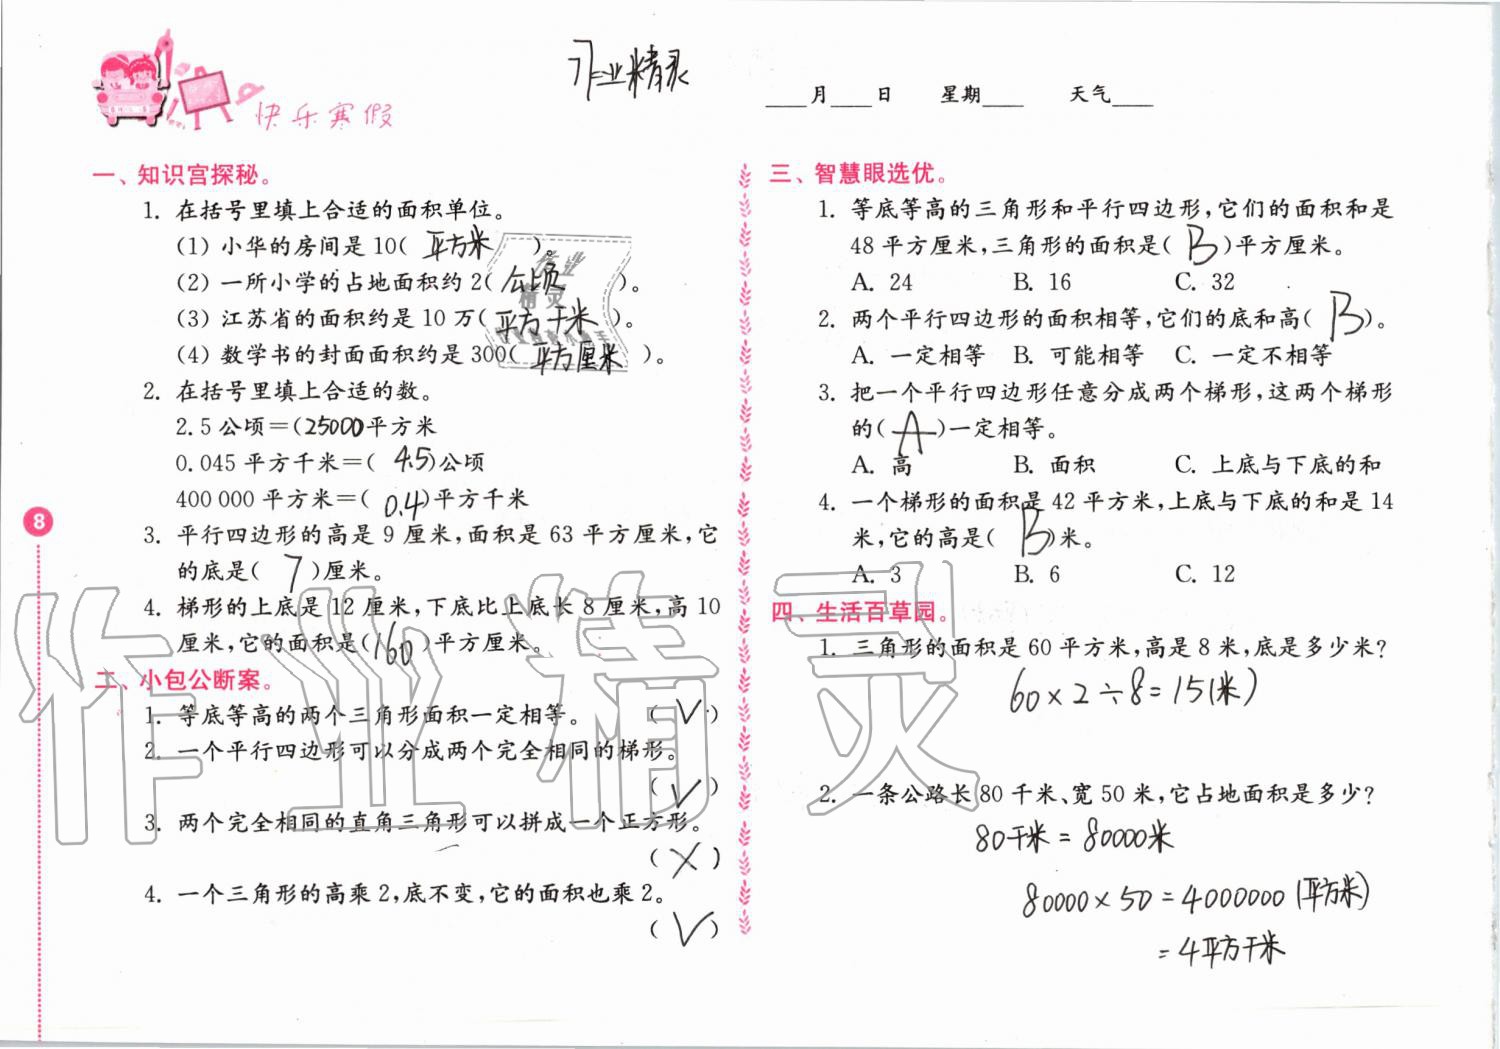 作业精灵
快乐寒假
____月____日 星期____ 天气____
一、知识宫探秘。
1. 在括号里填上合适的面积单位。
(1) 小华的房间是10( 平方米 )。
(2) 一所小学的占地面积约2( 公顷 )。
(3) 江苏省的面积约是10万( 平方千米 )。
(4) 数学书的封面面积约是300( 平方厘米 )。
2. 在括号里填上合适的数。
2.5公顷=(25000平方米
0.045平方千米=( 4.5)公顷
400 000平方米=( 0.4)平方千米
3. 平行四边形的高是9厘米,面积是63平方厘米,它
的底是( 7 )厘米。
4. 梯形的上底是12厘米,下底比上底长8厘米,高10
厘米,它的面积是(160)平方厘米。
二、小包公断案。
1. 等底等高的两个三角形面积一定相等。 (√)
2. 一个平行四边形可以分成两个完全相同的梯形。
(√)
3. 两个完全相同的直角三角形可以拼成一个正方形。
(×)
4. 一个三角形的高乘2,底不变,它的面积也乘2。
(√)
8
三、智慧眼选优。
1. 等底等高的三角形和平行四边形,它们的面积和是
48平方厘米,三角形的面积是( B )平方厘米。
A. 24 B. 16 C. 32
2. 两个平行四边形的面积相等,它们的底和高( B )。
A. 一定相等 B. 可能相等 C. 一定不相等
3. 把一个平行四边形任意分成两个梯形,这两个梯形
的( A )一定相等。
A. 高 B. 面积 C. 上底与下底的和
4. 一个梯形的面积是42平方米,上底与下底的和是14
米,它的高是( B )米。
A. 3 B. 6 C. 12
四、生活百草园。
1. 三角形的面积是60平方米,高是8米,底是多少米?
60×2÷8=15(米)
2. 一条公路长80千米、宽50米,它占地面积是多少?
80千米=80000米
80000×50=4000000(平方米)
=4平方千米
作业精灵
作业
精灵